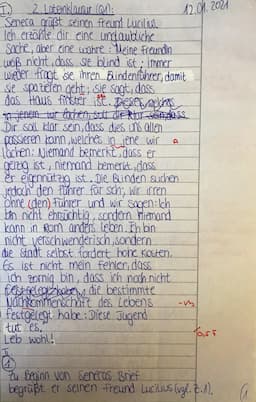 I.) 2. Lateinklausur (Q1): 12.01.2021
Seneca grüßt seinen Freund Lucilius.
Ich erzähle dir eine unglaubliche
Sache, aber eine wahre: Meine Freundin
weiß nicht, dass sie blind ist; immer
wieder fragt sie ihren Blindenführer, damit
sie spazieren geht; sie sagt, dass
das Haus finster ist.
Dir soll klar sein, dass dies uns allen
passieren kann, welches in jene wir
lachen: Niemand bemerkt, dass er
gierig ist, niemand bemerkt, dass
er eigennützig ist. Die Blinden suchen
jedoch den Führer für sich; wir irren
ohne (den) Führer und wir sagen: Ich
bin nicht ehrsüchtig, sondern niemand
kann in Rom anders leben. Ich bin
nicht verschwenderisch, sondern
die Stadt selbst fordert hohe Kosten.
Es ist nicht mein Fehler, dass
ich zornig bin, dass ich noch nicht
die bestimmte
Nachkommenschaft des Lebens
festgelegt habe: Diese Jugend
tut es.
Leb wohl!
I.
1.
Zu Beginn von Senecas Brief
begrüßt er seinen Freund Lucilius (vgl. Z.1).